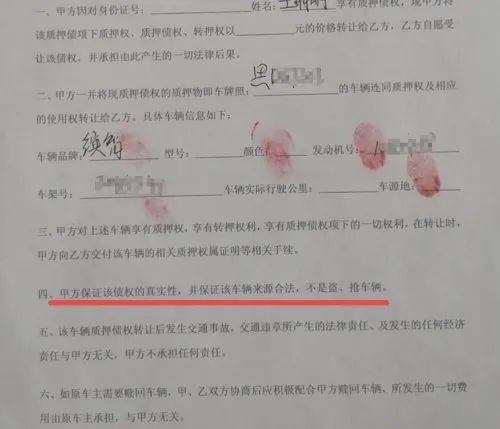 一、甲方因对身份证号: 姓名: 享有质押债权,现甲方将
该质押债项下质押权、质押债权、转押权以 元的价格转让给乙方,乙方自愿受
让该债权,并承担由此产生的一切法律后果。
二、甲方一并将现质押债权的质押物即车牌照: 的车辆连同质押权及相应
的使用权转让给乙方。具体车辆信息如下:
车辆品牌: 缤智 型号: 颜色: 发动机号:
车架号: 车辆实际行驶公里: 车源地:
三、甲方对上述车辆享有质押权,享有转押权利,享有质押债权项下的一切权利,在转让时,
甲方向乙方交付该车辆的相关质押权属证明等相关手续。
四、甲方保证该债权的真实性,并保证该车辆来源合法,不是盗、抢车辆。
五、该车辆质押债权转让后发生交通事故,交通违章所产生的法律责任、及发生的任何经济
责任与甲方无关,甲方不承担任何责任。
六、如原车主需要赎回车辆,甲、乙双方协商后应积极配合甲方赎回车辆,所发生的一切费
用由原车主承担,与甲方无关。